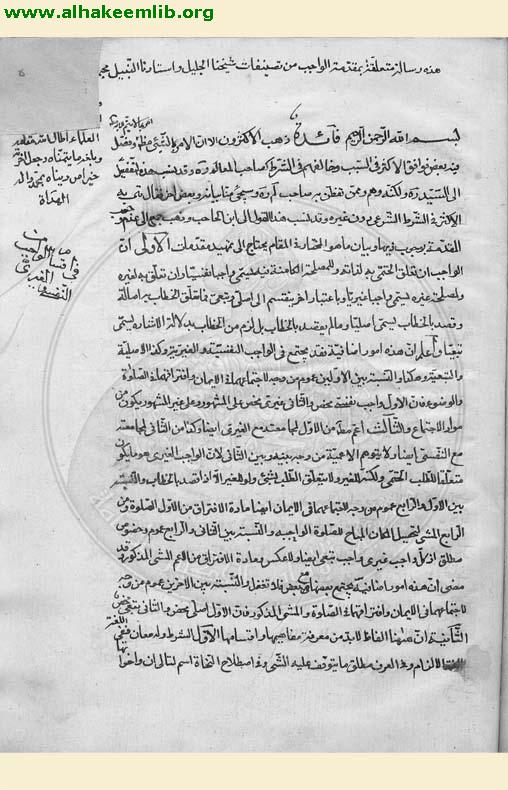 www.alhakeemlib.org
هذه رسالة متعلقة بمقدمة الواجب من تصنيفات شيخنا الجليل واستادنا النبيل
بسم الله الرحمن الرحيم فائدة ذهب الأكثرون الا ان الامر بالشئ مطلقا
فيه بعض نوافق الاكثر في السبب وخالفهم في الشرط كصاحب المعالم ره وقد نسب هذا التفصيل
الى السيد ره ولكنه وهم وممن تفطن به صاحب لم ره وسيجئ بيانه وبعض اخر فقال به
الاكثر في الشرط الشرعي دون غيره وقد نسب هذا القول الى ابن الحاجب وذهب جمع الى عدم
المقدمة وجوب فيها وبيان ما هو المختار في المقام يحتاج الى تمهيد مقدمات الاولى ان
الواجب ان تعلق الحتمي به لذاته وللمصلحة الكامنة فيه ليسمى واجبا نفسيا وان تعلق به لغيره
ولمصلحة غيره يسمى واجبا غيريا وباعتبار اخر ينقسم الى اصلي وتبعي فما تعلق الخطاب به اصالة
وقصد بالخطاب يسمى اصليا وما لم يقصد بالخطاب بل لزم من الخطاب بدلالة الاشارة يسمى
تبعيا واعلم ان هذه امور اضافية فقد يجتمع في الواجب النفسية والغيرية وكذا الاصلية
والتبعية وهكذا والنسبة بين الاولين عموم من وجه لاجتماعهما في الايمان وافتراقهما في الصلوة
والوضوء فان الاول واجب نفسي محض والثاني غيري محض على المشهور وعلى غير المشهور يكون من
موارد الاجتماع والثالث اعم مطلقا من الاول لاجتماعه مع الغيري ايضا وكذا من الثاني لاجتماعه
مع النفسي ايضا ولا يتوهم الاعمية من وجه بينه وبين الثاني لان الواجب الغيري هو ما يكون
متعلقا للطلب الحتمي ولكنه للغير ولا يتعلق الطلب بشئ ولو للغير الا اذا قصد بالخطاب والنسبة
بين الاول والرابع عموم من وجه لاجتماعهما في الايمان ايضا مادة الافتراق من الاول الصلوة ومن
الرابع المشي لتحصيل المكان المباح للصلوة الواجبة والنسبة بين الثاني والرابع عموم وخصوص
مطلق اذ كل واجب غيري واجب تبعي ايضا ولا عكس ومادة الافتراق من الاعم المشي المذكور وقد
مضى ان هذه امور اضافية يجتمع بعضها مع بعض فلا تغفل والنسبة بين الاخيرين عموم من وجه
لاجتماعهما في الايمان وافتراقهما في الصلوة والمشي المذكور فان الاول اصلي محض والثاني تبعي محض
الثانية ان هيهنا الفاظ لابد من معرفة مفاهيمها واقسامها الاول الشرط وله معان ففي اللغة
الالزام وفي العرف مطلق ما يتوقف عليه الشئ وفي اصطلاح النحاة اسم لتالي ان واخواتها